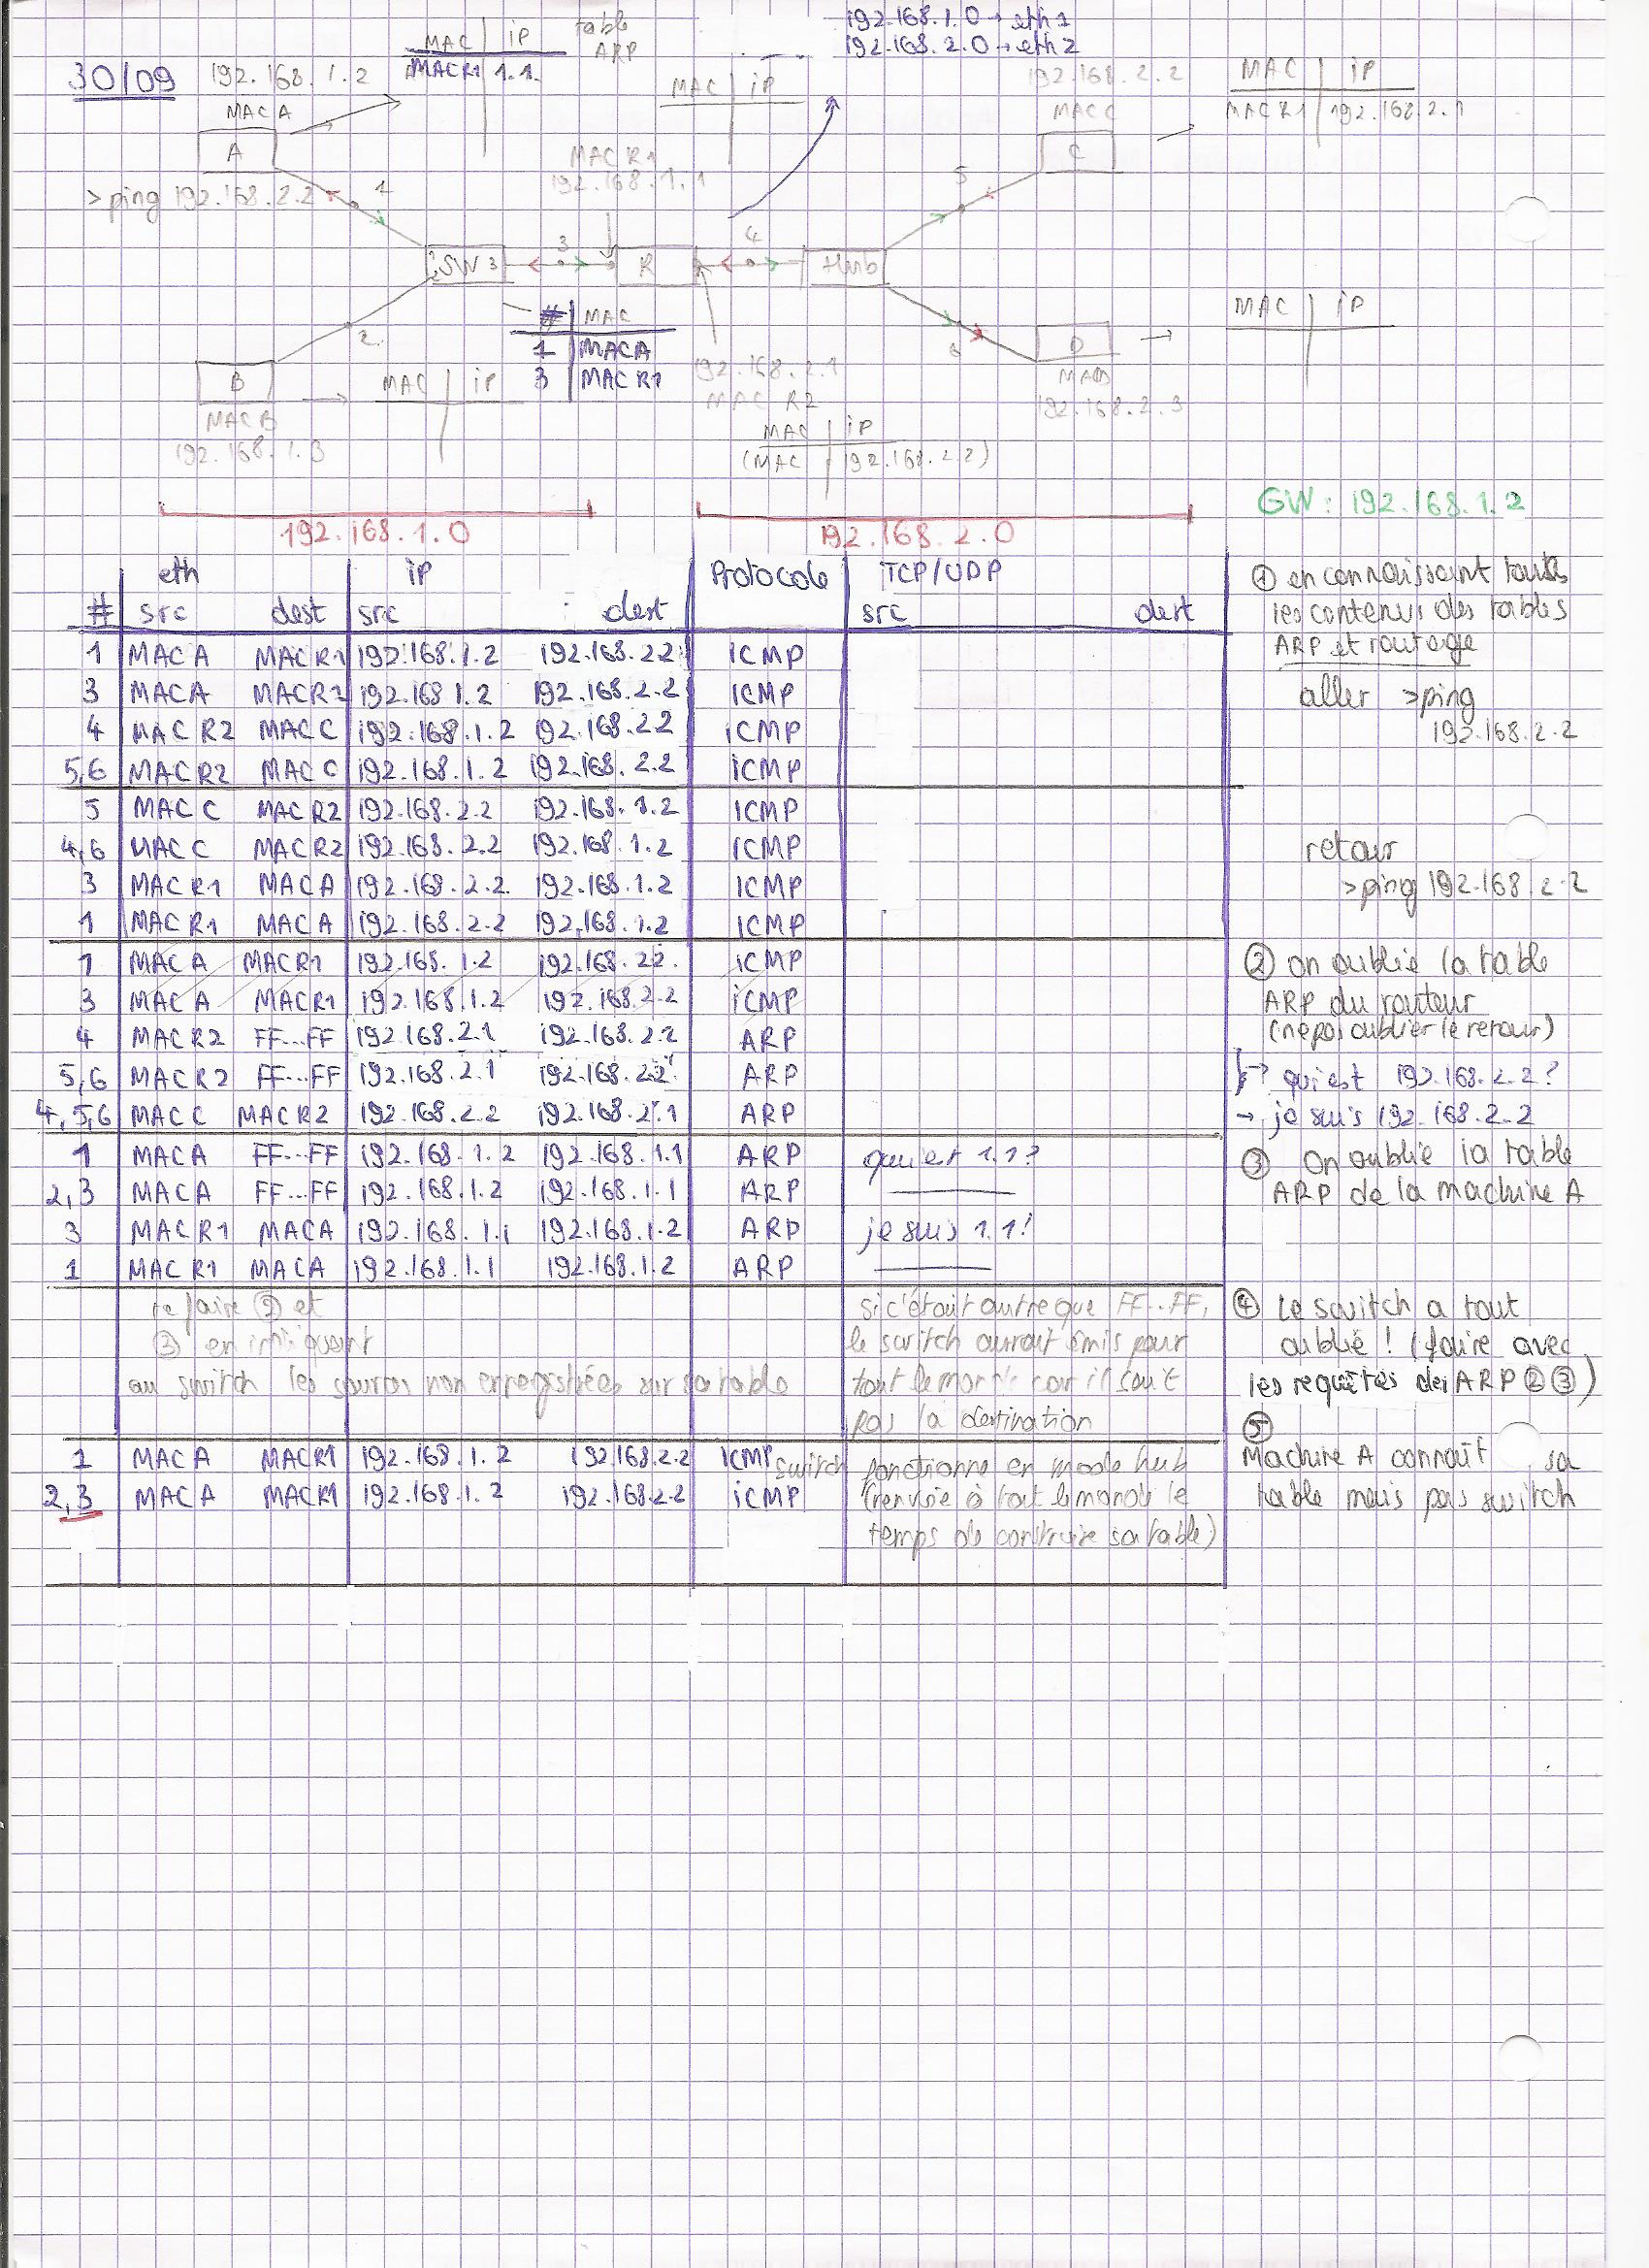 30/09
192.168.1.2
MAC A
A
>ping 192.168.2.2
1
MAC | iP
MACR1 | 1.1.
table
ARP
MAC | iP
192.168.1.0 → eth1
192.168.2.0 → eth2
192.168.2.2
MAC C
C
5
MAC | iP
MACR1 | 192.168.2.1
MAC R1
192.168.1.1
SW 3
3
R
4
Hub
2
# | MAC
1 | MACA
3 | MACR1
B
MAC B
192.168.1.3
MAC | iP
192.168.2.1
MAC R2
MAC | iP
(MAC | 192.168.2.2)
6
D
MACD
192.168.2.3
MAC | iP
192.168.1.0
192.168.2.0
GW: 192.168.1.2
eth iP Protocole TCP/UDP
# src dest src dest src dest
1 MAC A MACR1 192.168.1.2 192.168.2.2 ICMP
3 MACA MACR1 192.168 1.2 192.168.2.2 ICMP
4 MAC R2 MACC 192.168.1.2 192.168.2.2 iCMP
5,6 MACR2 MAC C 192.168.1.2 192.168.2.2 iCMP
5 MAC C MACR2 192.168.2.2 192.168.1.2 ICMP
4,6 MAC C MACR2 192.168.2.2 192.168.1.2 ICMP
3 MACR1 MACA 192.168.2.2 192.168.1.2 ICMP
1 MAC R1 MAC A 192.168.2.2 192.168.1.2 ICMP
1 MAC A MACR1 192.168.1.2 192.168.22. iCMP
3 MAC A MACR1 192.168.1.2 192.168.2.2 iCMP
4 MACR2 FF...FF 192.168.2.1 192.168.2.2 ARP
5,6 MACR2 FF...FF 192.168.2.1 192.168.2.2 ARP
4,5,6 MACC MACR2 192.168.2.2 192.168.2.1 ARP
1 MACA FF...FF 192.168.1.2 192.168.1.1 ARP qui est 1.1?
2,3 MACA FF...FF 192.168.1.2 192.168.1.1 ARP
3 MACR1 MACA 192.168.1.1 192.168.1.2 ARP je suis 1.1!
1 MACR1 MACA 192.168.1.1 192.168.1.2 ARP
re faire ② et
③ en indiquant
au switch les sources non enregistrées sur sa table
si c'était autre que FF...FF,
le switch aurait émis pour
tout le monde car il sait
pas la destination
1 MACA MACR1 192.168.1.2 192.168.2.2 ICMP
2,3 MACA MACR1 192.168.1.2 192.168.2.2 iCMP
switch fonctionne en mode hub
(renvoie à tout le monde le
temps de construire sa table)
① en connaissant toutes
les contenus des tables
ARP et routage
aller >ping
192.168.2.2
retour
>ping 192.168.2.2
② on oublie la table
ARP du routeur
(ne pas oublier le retour)
→ qui est 192.168.2.2?
→ je suis 192.168.2.2
③ On oublie la table
ARP de la machine A
④ Le switch a tout
oublié ! (faire avec
les requêtes des ARP ② ③)
⑤
Machine A connaît sa
table mais pas switch